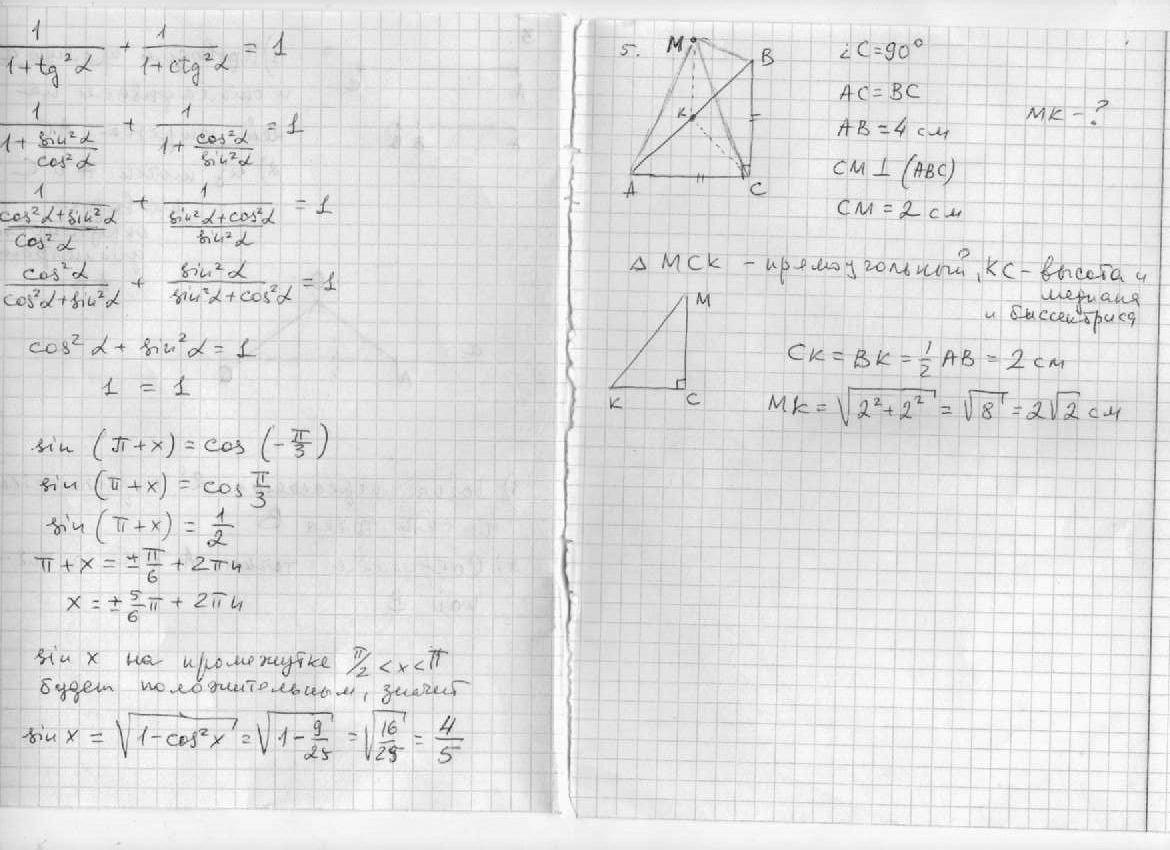 1/(1+tg²α) + 1/(1+ctg²α) = 1
1/(1+sin²α/cos²α) + 1/(1+cos²α/sin²α) = 1
1/((cos²α+sin²α)/cos²α) + 1/((sin²α+cos²α)/sin²α) = 1
cos²α/(cos²α+sin²α) + sin²α/(sin²α+cos²α) = 1
cos²α + sin²α = 1
1 = 1
sin (π+x) = cos (-π/3)
sin (π+x) = cos π/3
sin (π+x) = 1/2
π+x = ±π/6 + 2πn
x = ±5/6π + 2πn
sin x на промежутке π/2 < x < π
будет положительным, значит
sin x = √(1-cos²x) = √(1-9/25) = √(16/25) = 4/5
5.
M
B
K
A
C
∠C=90°
AC=BC
AB=4 см
CM⊥(ABC)
CM=2 см
MK-?
△ MCK - прямоугольный, KC - высота и
медиана
и биссектриса
M
K
C
CK = BK = 1/2 AB = 2 см
MK = √(2²+2²) = √8 = 2√2 см